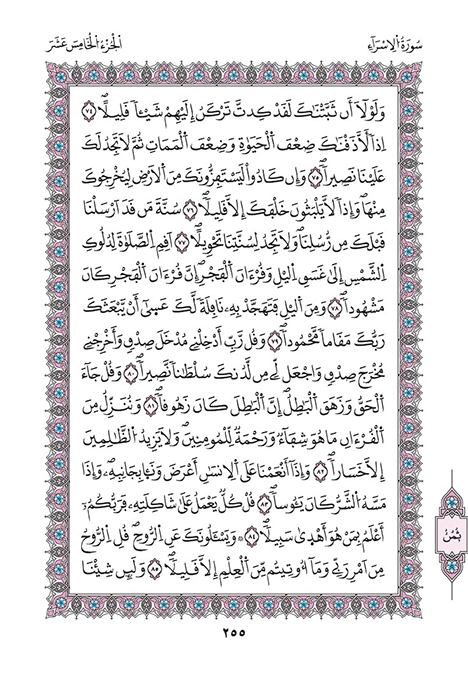 سُورَةُ الِاسْرَآءِ
الْجُزْءُ الْخَامِسَ عَشَرَ
وَلَوْلَآ أَن ثَبَّتْنَٰكَ لَقَدْ كِدتَّ تَرْكَنُ إِلَيْهِمْ شَيْـٔاً قَلِيلاً ۝٧٤
إِذاً لَّأَذَقْنَٰكَ ضِعْفَ اَلْحَيَوٰةِ وَضِعْفَ اَلْمَمَاتِ ثُمَّ لَا تَجِدُ لَكَ
عَلَيْنَا نَصِيراً ۝٧٥ وَإِن كَادُواْ لَيَسْتَفِزُّونَكَ مِنَ اَلْأَرْضِ لِيُخْرِجُوكَ
مِنْهَا وَإِذاً لَّا يَلْبَثُونَ خَلْفَكَ إِلَّا قَلِيلاً ۝٧٦ سُنَّةَ مَن قَدَ اَرْسَلْنَا
قَبْلَكَ مِن رُّسُلِنَا وَلَا تَجِدُ لِسُنَّتِنَا تَحْوِيلاً ۝٧٧ اَقِمِ اِلصَّلَوٰةَ لِدُلُوكِ
اِلشَّمْسِ إِلَىٰ غَسَقِ اِليْلِ وَقُرْءَانَ اَلْفَجْرِ إِنَّ قُرْءَانَ اَلْفَجْرِ كَانَ
مَشْهُوداً ۝٧٨ وَمِنَ اَليْلِ فَتَهَجَّدْ بِهِۦ نَافِلَةً لَّكَ عَسَىٰٓ أَنْ يَّبْعَثَكَ
رَبُّكَ مَقَاماً مَّحْمُوداً ۝٧٩ وَقُل رَّبِّ أَدْخِلْنِے مُدْخَلَ صِدْقٍ وَأَخْرِجْنِے
مُخْرَجَ صِدْقٍ وَاجْعَل لِّے مِن لَّدُنكَ سُلْطَٰناً نَّصِيراً ۝٨٠ وَقُلْ جَآءَ
اَلْحَقُّ وَزَهَقَ اَلْبَٰطِلُ إِنَّ اَلْبَٰطِلَ كَانَ زَهُوقاً ۝٨١ وَنُنَزِّلُ مِنَ
اَلْقُرْءَانِ مَا هُوَ شِفَآءٌ وَرَحْمَةٌ لِّلْمُومِنِينَ وَلَا يَزِيدُ اُلظَّٰلِمِينَ
إِلَّا خَسَاراً ۝٨٢ وَإِذَآ أَنْعَمْنَا عَلَى اَلِانسَٰنِ أَعْرَضَ وَنَـَٔا بِجَانِبِهِۦ وَإِذَا
مَسَّهُ اُلشَّرُّ كَانَ يَـُٔوساً ۝٨٣ قُلْ كُلٌّ يَعْمَلُ عَلَىٰ شَاكِلَتِهِۦ فَرَبُّكُمُۥٓ
أَعْلَمُ بِمَنْ هُوَ أَهْدَىٰ سَبِيلاً ۝٨٤ وَيَسْـَٔلُونَكَ عَنِ اِلرُّوحِ قُلِ اِلرُّوحُ
مِنَ اَمْرِ رَبِّے وَمَآ أُوتِيتُم مِّنَ اَلْعِلْمِ إِلَّا قَلِيلاً ۝٨٥ وَلَئِن شِئْنَا
ثُمُنُ
٢٥٥